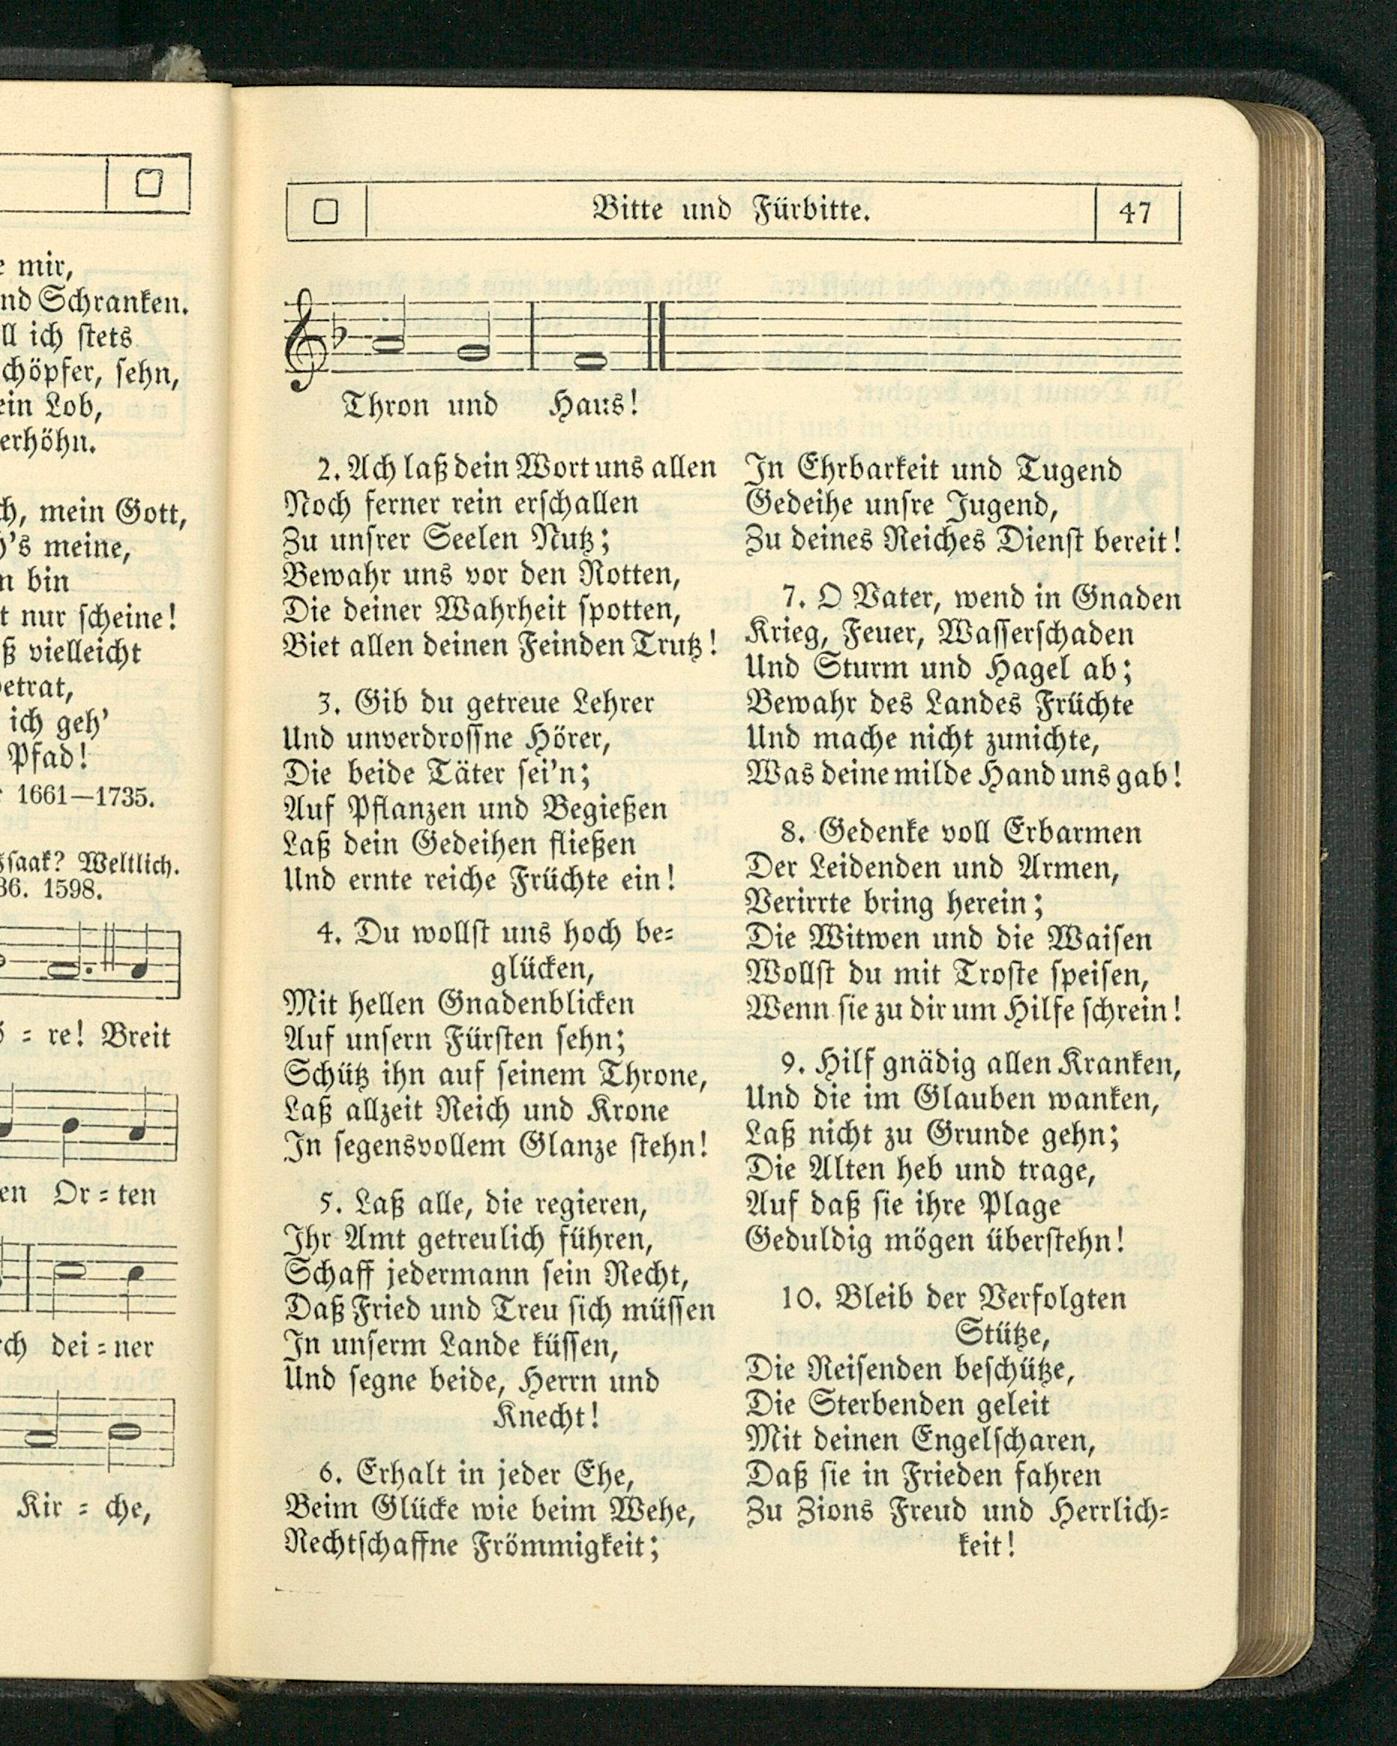 e mir,
nd Schranken.
ll ich stets
chöpfer, sehn,
ein Lob,
erhöhn.
ch, mein Gott,
's meine,
n bin
t nur scheine!
ß vielleicht
betrat,
ich geh'
Pfad!
1661—1735.
ssaak? Weltlich.
86. 1598.
ö = re! Breit
en Or = ten
rch dei = ner
Kir = che,
Bitte und Fürbitte.
47
Thron und Haus!
2. Ach laß dein Wort uns allen
Noch ferner rein erschallen
Zu unsrer Seelen Nutz;
Bewahr uns vor den Rotten,
Die deiner Wahrheit spotten,
Biet allen deinen Feinden Trutz!
3. Gib du getreue Lehrer
Und unverdrossne Hörer,
Die beide Täter sei'n;
Auf Pflanzen und Begießen
Laß dein Gedeihen fließen
Und ernte reiche Früchte ein!
4. Du wollst uns hoch be=
glücken,
Mit hellen Gnadenblicken
Auf unsern Fürsten sehn;
Schütz ihn auf seinem Throne,
Laß allzeit Reich und Krone
In segensvollem Glanze stehn!
5. Laß alle, die regieren,
Ihr Amt getreulich führen,
Schaff jedermann sein Recht,
Daß Fried und Treu sich müssen
In unserm Lande küssen,
Und segne beide, Herrn und
Knecht!
6. Erhalt in jeder Ehe,
Beim Glücke wie beim Wehe,
Rechtschaffne Frömmigkeit;
In Ehrbarkeit und Tugend
Gedeihe unsre Jugend,
Zu deines Reiches Dienst bereit!
7. O Vater, wend in Gnaden
Krieg, Feuer, Wasserschaden
Und Sturm und Hagel ab;
Bewahr des Landes Früchte
Und mache nicht zunichte,
Was deine milde Hand uns gab!
8. Gedenke voll Erbarmen
Der Leidenden und Armen,
Verirrte bring herein;
Die Witwen und die Waisen
Wollst du mit Troste speisen,
Wenn sie zu dir um Hilfe schrein!
9. Hilf gnädig allen Kranken,
Und die im Glauben wanken,
Laß nicht zu Grunde gehn;
Die Alten heb und trage,
Auf daß sie ihre Plage
Geduldig mögen überstehn!
10. Bleib der Verfolgten
Stütze,
Die Reisenden beschütze,
Die Sterbenden geleit
Mit deinen Engelscharen,
Daß sie in Frieden fahren
Zu Zions Freud und Herrlich=
keit!